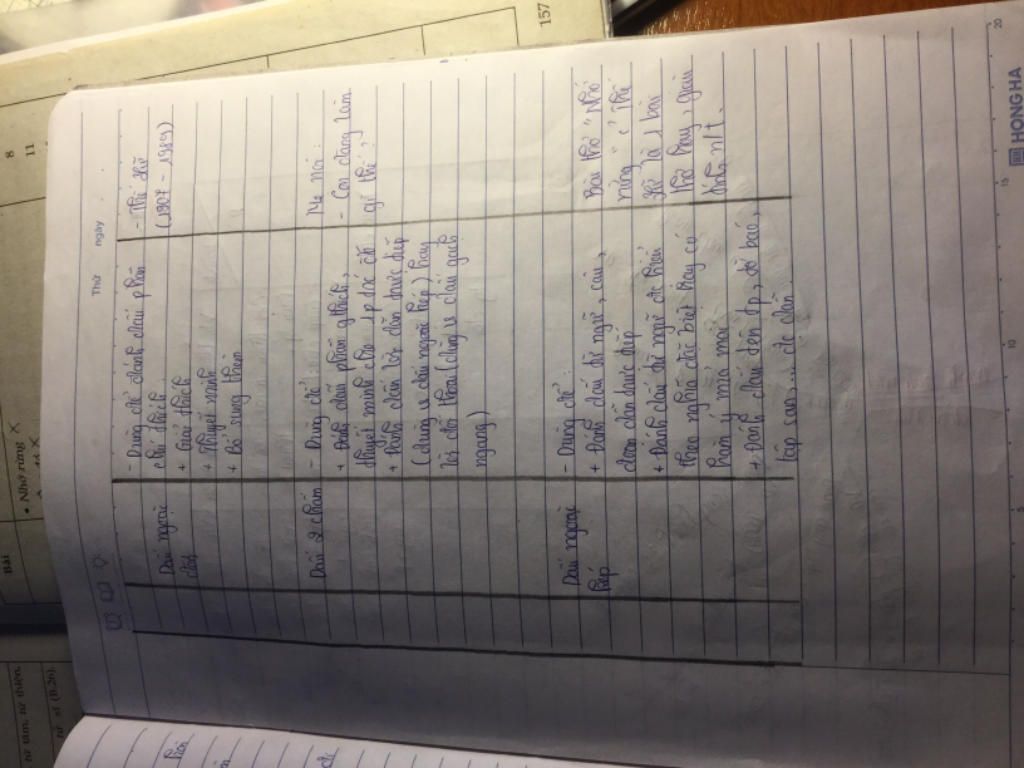 Thứ
ngày
Dấu ngoặc
đơn
- Dùng để đánh dấu phần
chú thích.
+ Giải thích
+ Thuyết minh
+ Bổ sung thêm
- Thế Lữ
(1907 - 1989)
Dấu 2 chấm
- Dùng để
+ Đánh dấu phần g thích,
thuyết minh cho 1 p trc đó
+ Đánh dấu lời dẫn trực tiếp
(dùng vs dấu ngoặc kép) hay
lời đối thoại (dùng vs dấu gạch
ngang)
Mẹ nói:
- Con đang làm
gì thế?
Dấu ngoặc
kép
- Dùng để
+ Đánh dấu từ ngữ, câu,
đoạn dẫn trực tiếp
+ Đánh dấu từ ngữ đc hiểu
theo nghĩa đặc biệt hay có
hàm ý mỉa mai
+ Đánh dấu tên t/p, tờ báo,
tập san... đc dẫn
Bài thơ "Nhớ
rừng" của Thế
Lữ là 1 bài
thơ hay, giàu
HONG HA
5
10
15
20
157
8
11
Bài
• Nhớ rừng X
từ tâm, từ thiện,
tử sĩ (B.26).